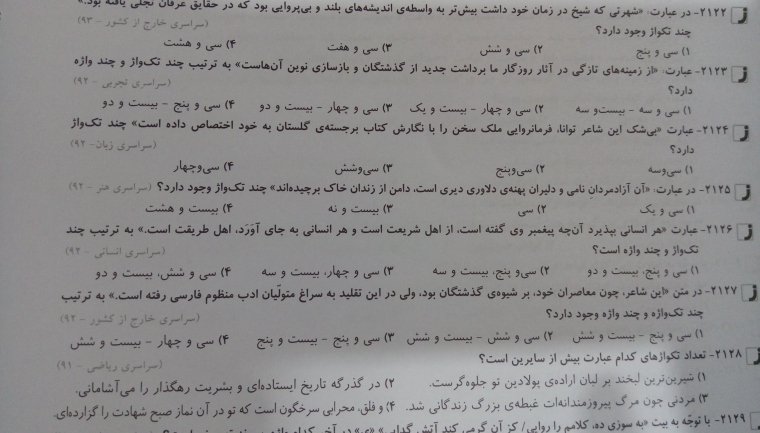 ۲۱۲۲- در عبارت: «شهرتی که شیخ در زمان خود داشت بیش‌تر به واسطه‌ی اندیشه‌های بلند و بی‌پروایی بود که در حقایق عرفان تجلی یافته بود.»
چند تکواژ وجود دارد؟ (سراسری خارج از کشور - ۹۳)
۱) سی و پنج ۲) سی و شش ۳) سی و هفت ۴) سی و هشت
۲۱۲۳- عبارت: «از زمینه‌های تازگی در آثار روزگار ما برداشت جدید از گذشتگان و بازسازی نوین آن‌هاست» به ترتیب چند تک‌واژ و چند واژه
دارد؟ (سراسری تجربی - ۹۲)
۱) سی و سه - بیست‌و سه ۲) سی و چهار - بیست و یک ۳) سی و چهار - بیست و دو ۴) سی و پنج - بیست و دو
۲۱۲۴- عبارت «بی‌شک این شاعر توانا، فرمانروایی ملک سخن را با نگارش کتاب برجسته‌ی گلستان به خود اختصاص داده است» چند تک‌واژ
دارد؟ (سراسری زبان- ۹۲)
۱) سی‌وسه ۲) سی‌وپنج ۳) سی‌وشش ۴) سی‌وچهار
۲۱۲۵- در عبارت: «آن آزادمردان نامی و دلیران پهنه‌ی دلاوری دیری است، دامن از زندان خاک برچیده‌اند» چند تک‌واژ وجود دارد؟ (سراسری هنر - ۹۲)
۱) سی و یک ۲) سی ۳) بیست و نه ۴) بیست و هشت
۲۱۲۶- عبارت «هر انسانی بپذیرد آن‌چه پیغمبر وی گفته است، از اهل شریعت است و هر انسانی به جای آوَرَد، اهل طریقت است.» به ترتیب چند
تک‌واژ و چند واژه است؟ (سراسری انسانی - ۹۲)
۱) سی و پنج، بیست و دو ۲) سی‌و پنج، بیست و سه ۳) سی و چهار، بیست و سه ۴) سی و شش، بیست و دو
۲۱۲۷- در متن «این شاعر، چون معاصران خود، بر شیوه‌ی گذشتگان بود، ولی در این تقلید به سراغ متولّیان ادب منظوم فارسی رفته است.» به ترتیب
چند تک‌واژه و چند واژه وجود دارد؟ (سراسری خارج از کشور - ۹۲)
۱) سی و پنج - بیست و شش ۲) سی و شش - بیست و شش ۳) سی و پنج - بیست و پنج ۴) سی و چهار - بیست و شش
۲۱۲۸- تعداد تکواژهای کدام عبارت بیش از سایرین است؟ (سراسری ریاضی - ۹۱)
۱) شیرین‌ترین لبخند بر لبان اراده‌ی پولادین تو جلوه‌گرست. ۲) در گذرگه تاریخ ایستاده‌ای و بشریت رهگذار را می‌آشامانی.
۳) مردنی چون مرگ پیروزمندانه‌ات غبطه‌ی بزرگ زندگانی شد. ۴) و فلق، محرابی سرخگون است که تو در آن نماز صبح شهادت را گزارده‌ای.
۲۱۲۹- با توجّه به بیت «به سوزی ده، کلامم را روایی/ کز آن گرمی کند آتش گدایی»